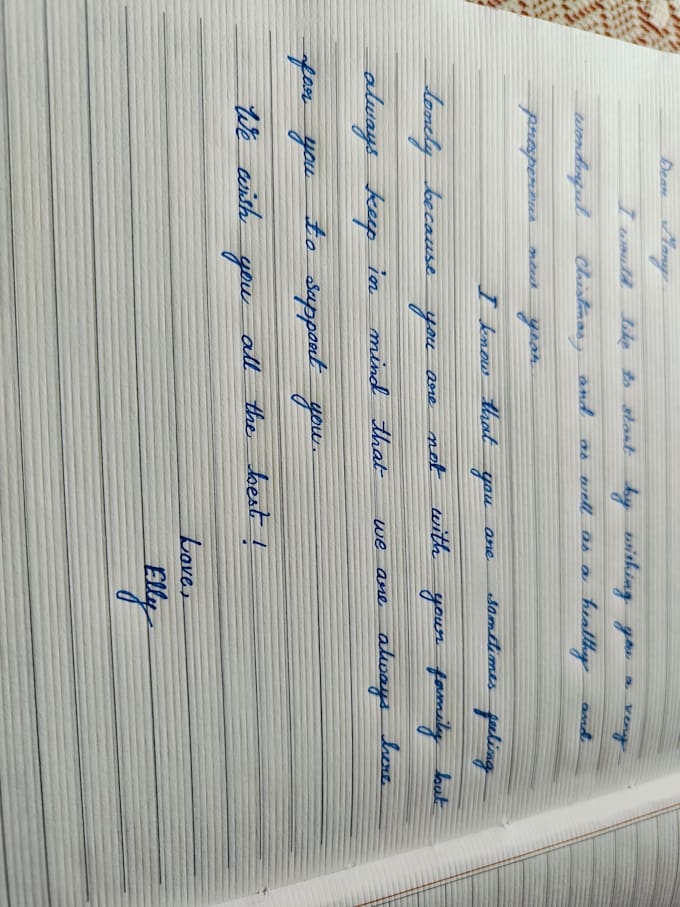 Dear Mary,
I would like to start by wishing you a very
wonderful Christmas, and as well as a healthy and
prosperous new year.
I know that you are sometimes feeling
lonely because you are not with your family but
always keep in mind that we are always here
for you to support you.
We wish you all the best!
Love,
Elly